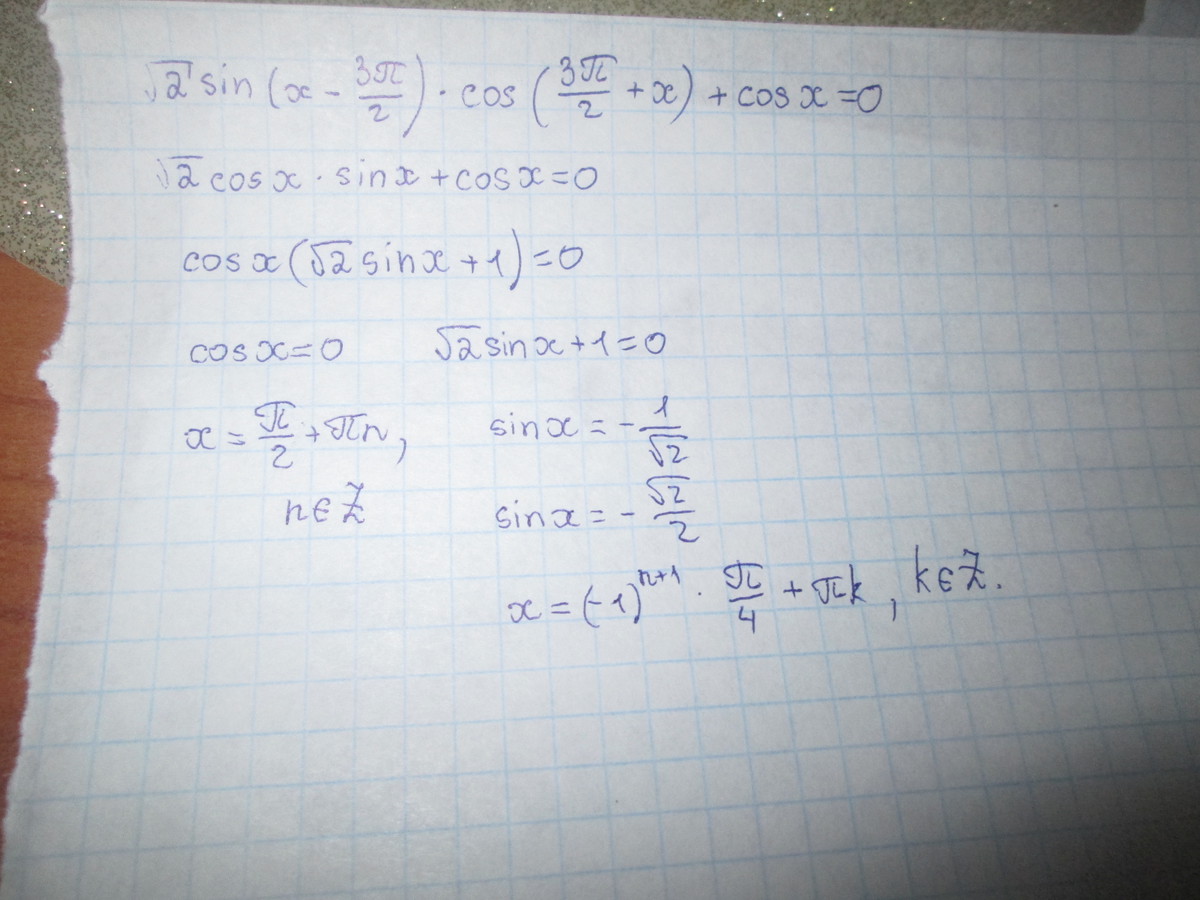 √2 sin (x - 3π/2) · cos (3π/2 + x) + cos x = 0
√2 cos x · sin x + cos x = 0
cos x (√2 sin x + 1) = 0
cos x = 0 √2 sin x + 1 = 0
x = π/2 + πn, sin x = - 1/√2
n ∈ Z sin x = - √2/2
x = (-1)^(n+1) · π/4 + πk, k ∈ Z.